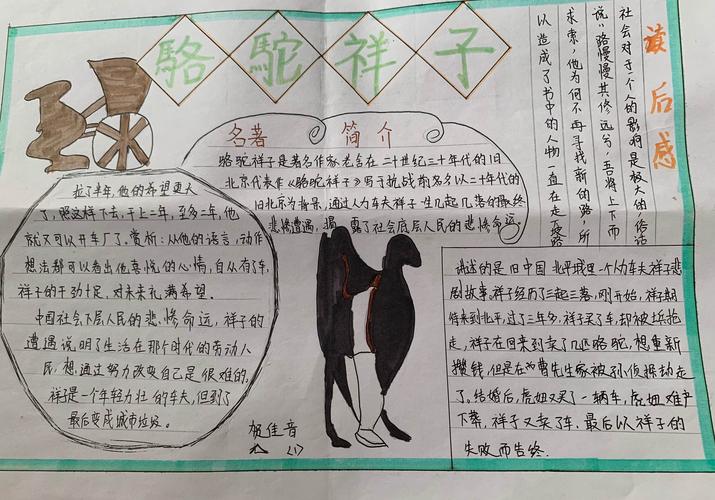 駱駝祥子
读后感
社会对于一个人的影响是极大的,俗话
说“路慢慢其修远兮,吾将上下而
求索,他为何不再寻找前的路,所
以造成了书中的人物一直在走
名著 简介
骆驼祥子是著名作家老舍在二十世纪三十年代的旧
北京代表作《骆驼祥子》写于抗战前名以二十年代的
旧北京为背景,通过人力车夫祥子一生几起几落的最终
悲惨遭遇,揭露了社会底层人民的悲惨命运
拉了半年,他的希望更大
了,照这样下去,干上二年,至多二年,他
就又可以开车厂了。赏析:从他的语言,动作
想法都可以看出他喜悦的心情,自从有了车,
祥子的干劲十足,对未来礼满希望。
中国社会下层人民的悲惨命运,祥子的
遭遇说明了生活在那个时代的劳动人
民,想通过努力改变自己是很难的,
祥子是一个年轻力壮的车夫,但到了
最后变成城市垃圾。
讲述的是旧中国北平城里一个人力车夫祥子悲
剧故事,祥子经历了三起三落,刚开始,祥子
来到北平,过了三年多,祥子买了车,却被兵抢
走,祥子在回来到卖了几匹骆驼,想重新
攒钱,但是在曹先生家被孙侦探劫走
了。结婚后,虎妞又买了一辆车,虎妞难产
下葬,祥子又卖了车,最后以祥子的
失败而告终.
贺佳音
九(1)